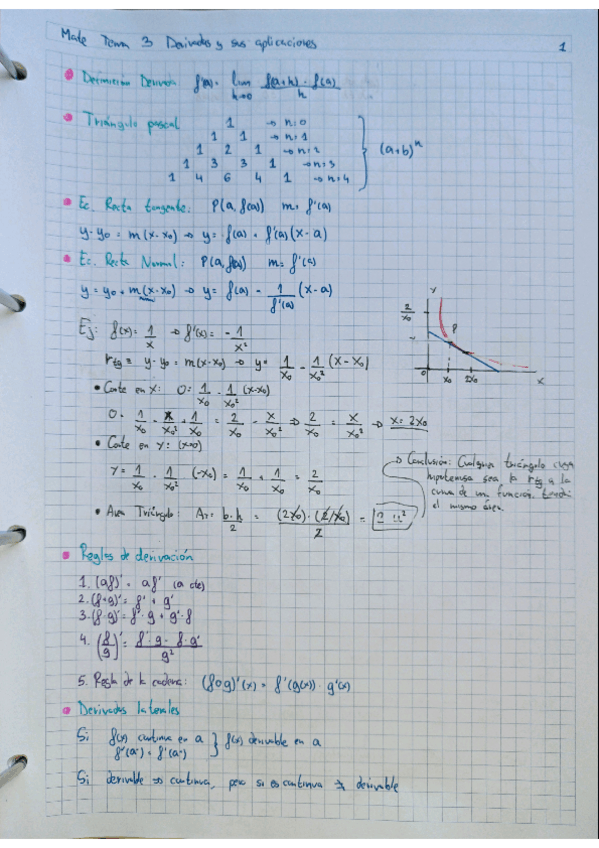 Mate Tema 3 Derivadas y sus aplicaciones 1
Definición Derivada f'(a) = lim h→0 f(a+h) - f(a) / h
Triángulo pascal 1 → n=0
1 1 → n=1
1 2 1 → n=2
1 3 3 1 → n=3
1 4 6 4 1 → n=4
(a+b)^n
Ec. Recta tangente: P(a, f(a)) m = f'(a)
y-y₀ = m(x-x₀) → y = f(a) + f'(a)(x-a)
Ec. Recta Normal: P(a, f(a)) m = f'(a)
y = y₀ + m(x-x₀) → y = f(a) - 1/f'(a) (x-a)
Ej: f(x) = 1/x → f'(x) = -1/x²
rtg = y-y₀ = m(x-x₀) → y = 1/x₀ - 1/x₀² (x-x₀)
• Corte en X: 0 = 1/x₀ - 1/x₀² (x-x₀)
0 = 1/x₀ - x/x₀² + 1/x₀ = 2/x₀ - x/x₀² ⇒ 2/x₀ = x/x₀² → x = 2x₀
• Corte en Y: (x=0)
Y = 1/x₀ - 1/x₀² (-x₀) = 1/x₀ + 1/x₀ = 2/x₀
• Area Triángulo: A_T = b·h/2 = (2x₀)·(2/x₀)/2 = 2 u²
Y
2/x₀
P
0 x₀ 2x₀ X
→ Conclusión: Cualquier triángulo cuya
hipotenusa sea la rtg a la
curva de un función tendrá
el mismo área.
Reglas de derivación
1. (af)' = af' (a cte)
2. (f+g)' = f' + g'
3. (f·g)' = f'·g + g'·f
4. (f/g)' = f'·g - f·g' / g²
5. Regla de la cadena: (f∘g)'(x) = f'(g(x))·g'(x)
Derivadas laterales
Si f(x) continua en a } f(x) derivable en a
f'(a⁻) = f'(a⁺)
Si derivable ⇒ continua, pero si es continua ⇏ derivable